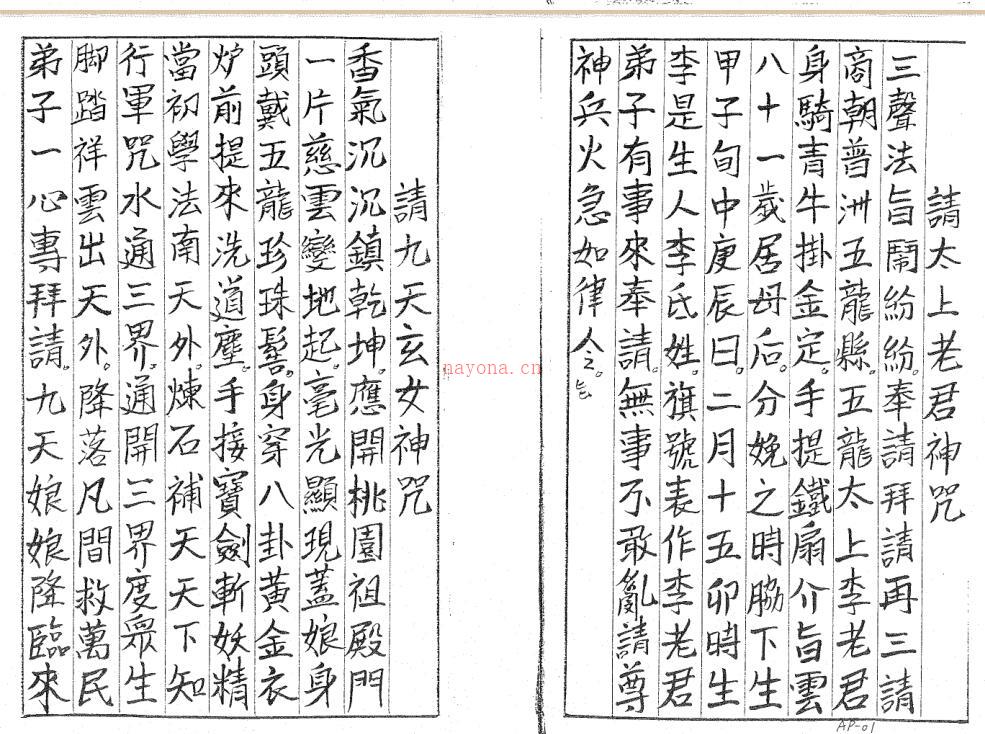 請太上老君神咒
三聲法旨鬧紛紛。奉請拜請再三請
商朝普洲五龍縣。五龍太上李老君
身騎青牛掛金定。手提鐵扇介旨雲
八十一歲居母后。分娩之時脇下生
甲子旬中庚辰日。二月十五卯時生
李是生人李氏姓。旗號表作李老君
弟子有事來奉請。無事不敢亂請尊
神兵火急如律令。
請九天玄女神咒
香氣沉沉鎮乾坤。應開桃園祖殿門
一片慈雲變地起。毫光顯現蓋娘身
頭戴五龍珍珠髻。身穿八卦黃金衣
炉前提來洗道塵。手接寶劍斬妖精
當初學法南天外。煉石補天天下知
行軍咒水通三界。通開三界度眾生
脚踏祥雲出天外。降落凡間救萬民
弟子一心專拜請。九天娘娘降臨來
nayona.cn
AP-01